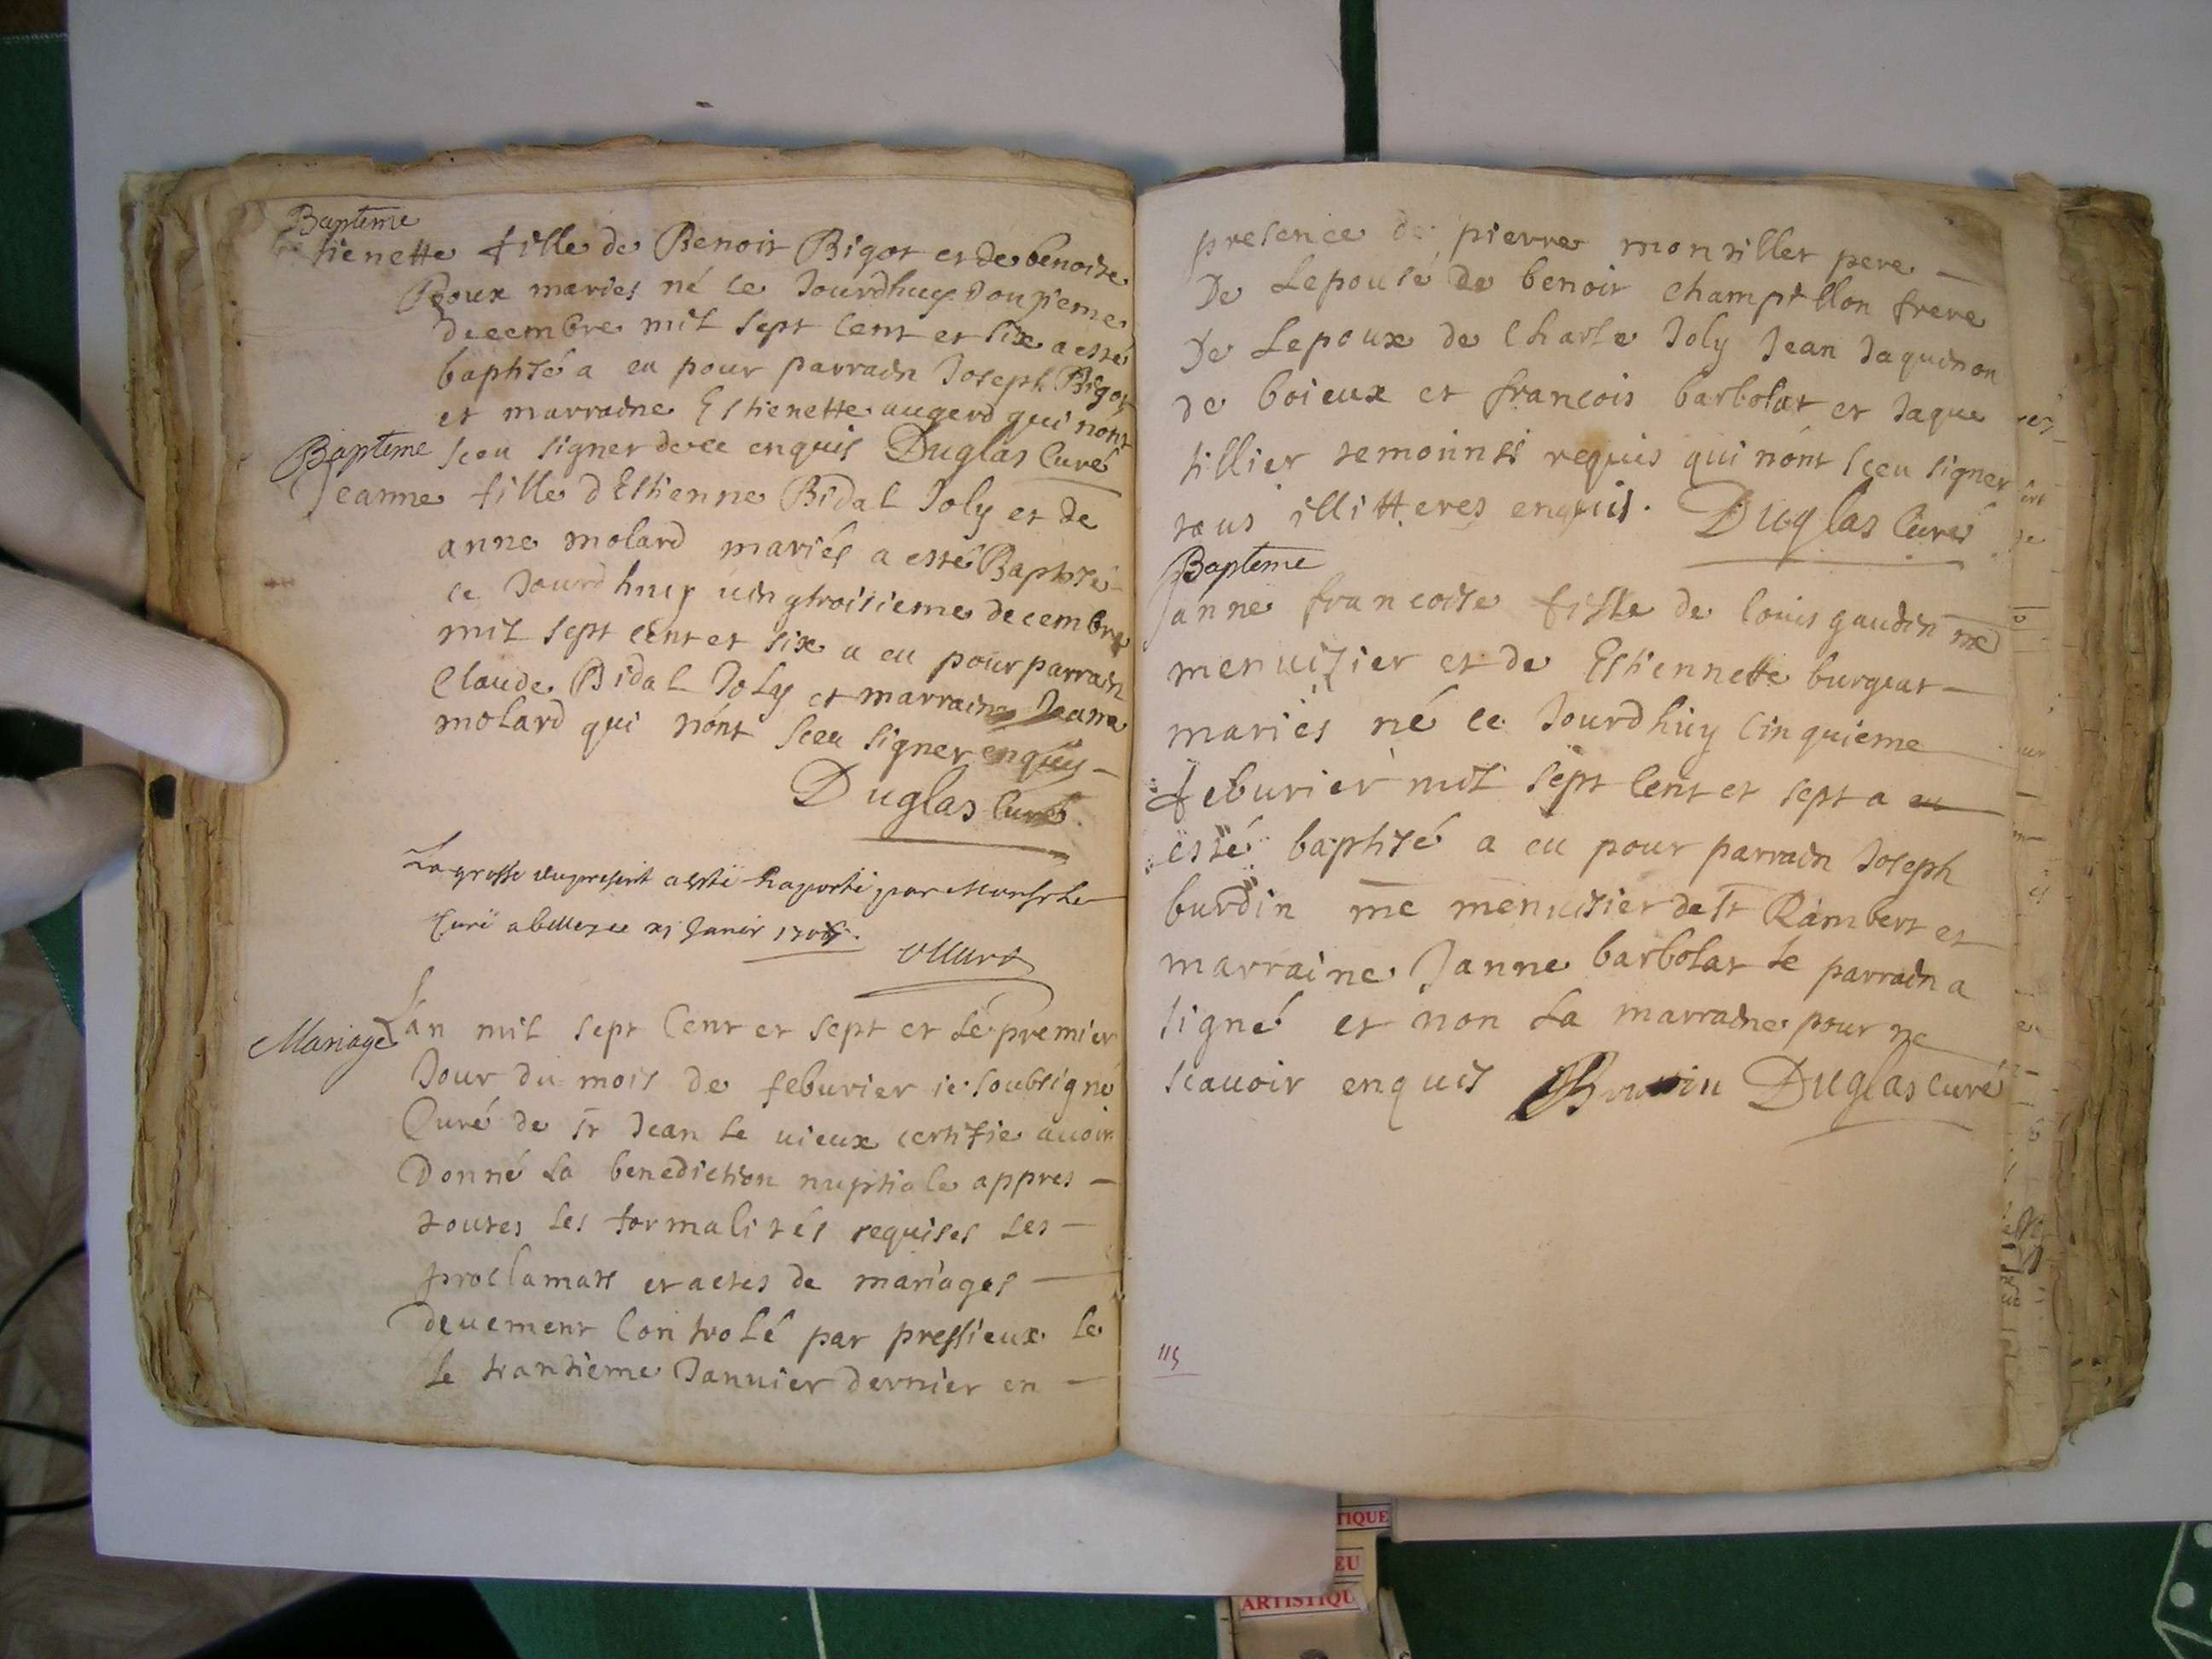 Bapteme
tienette fille de Benoit Bigot et de benoite
Roux maries né ce Jourdhuy Douzieme
decembre mil sept cent et six a esté
baptisé a eu pour parrain Joseph Bigot
et marraine Estienette augerd qui nont
Bapteme sceu signer dece enquis Duglas Curé
Jeanne fille dEstienne Bidal Joly et de
anne molard mariés a esté Baptisé
ce Jourdhuy uingtroisieme decembre
mil sept cent et six a eu pour parrain
Claude Bidal Joly et marraine Jeanne
molard qui nónt sceu signer enquis
Duglas Curé
La grosse du present a esté raporté par Monsr le
Curé a belley ce xi Janvier
Mariage Lan mil sept Cent et sept et le premier
Jour du mois de feburier ie soubsigné
Curé de St Jean le uieux certifie auoir
Donné la benediction nuptiale appres
toutes les formalités requises les
proclamats et actes de mariages
deuement Controlé par pressieux le
le trantieme Januier dernier en
presence de pierre montillet pere
De Lepouse de benoit champillon frere
De Lepoux de Charle Joly Jean Jaquinon
de boieux et francois barbolat et Jaque
tillier temoins requis qui nónt sceu signer
tous illitteres enquis. Duglas Curé
Bapteme
Janne francoise fille de louis gaudin me
menuizier et de Estiennette burgeat
mariés né ce Jourdhuy Cinquieme
feburier mil sept Cent et sept a eu
esté baptisé a eu pour parrain Joseph
burdin me menuisier de St Rambert et
marraine Janne barbolat le parrain a
signé et non la marraine pour ne
scauoir enquis Burdin Duglas curé
115
TIQUE
EU
ARTISTIQU